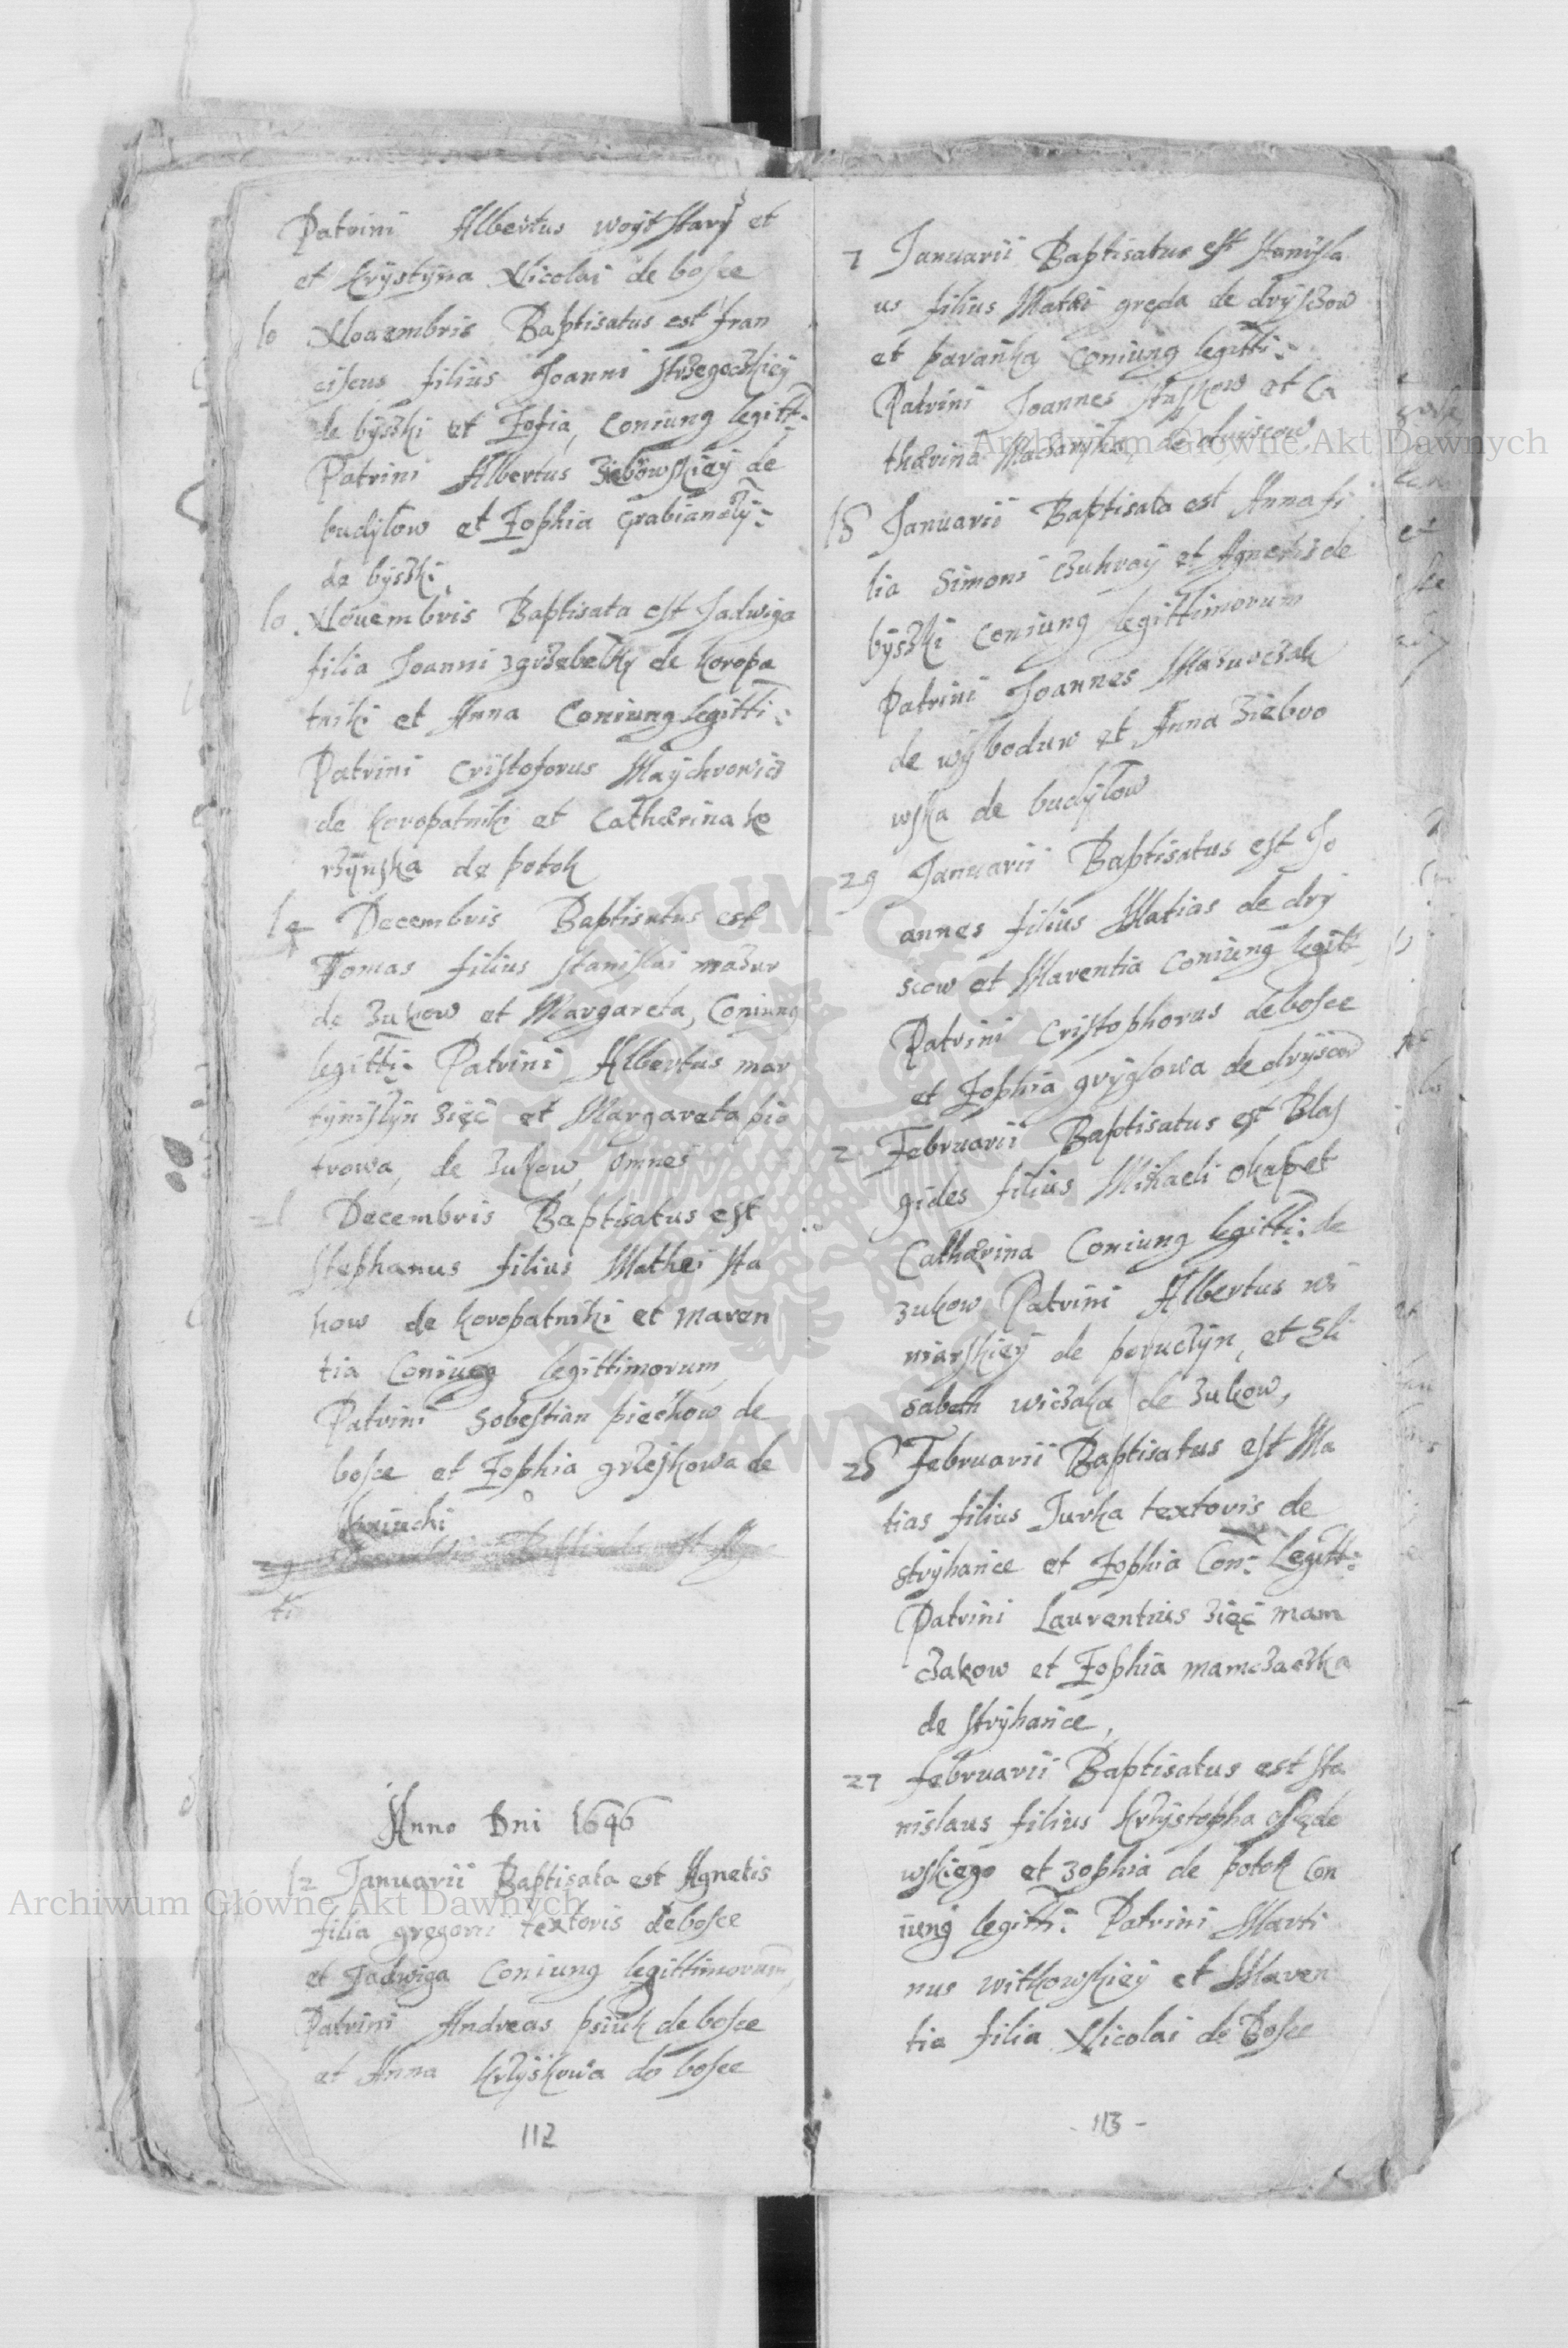 Patrini Albertus woyt stary et
et krÿstÿna Nicolai de bosce
10 Nouembris Baptisatus est fran
ciscus filius Joanni
de bÿszki et Zofia, Coniung legitt:
Patrini Albertus de
budÿlow et Zophia
de bÿszki
10 Nouembris Baptisata est Jadwiga
filia Joanni de koropa
tniki et Anna Coniung legitti:
Patrini Cristoforus Maÿchrowicz
de koropatniki et Catherina ko
de potok
Decembris Baptisatus est
Tomas filius stanislai mazur
de zukow et Margareta, Coniung
legitti: Patrini Albertus mar
zięć et Margareta pio
trowa, de zukow, omnes
21 Decembris Baptisatus est
stephanus filius Mathei sta
how de koropatniki et maren
tia Coniung legittimorum
Patrini Sobestian piechow de
bosce et Zophia de
Anno Dni 1646
12 Januarii Baptisata est Agnetis
filia gregorii textoris de bosce
et Jadwiga Coniung legittimorum,
Patrini Andreas psiuk de bosce
et Anna de bosce
112
7 Januarii Baptisatus est stanisla
us filius gręda de
et paraňka Coniung legitti:
Patrini Joannes et Ca
therina de
18 Januarii Baptisata est Anna fi
lia Simoni et Agnetis de
bÿszki Coniung legittimorum
Patrini Joannes Mazurczak
de wÿboduw et Anna ziebro
wska de budÿlow
29 Januarii Baptisatus est Jo
annes filius Matias de drÿ
scow et Marentia Coniung legitt
Patrini Cristophorus de bosce
et Zophia grÿglowa de drÿscow
2 Februarii Baptisatus est Blas
gides filius Mihaeli okap et
Catherina Coniung legitti: de
zukow Patrini Albertus
de et Eli
sabeth wiczaka de zukow,
25 Februarii Baptisatus est Ma
tias filius Jurka textoris de
strÿhance et Zophia Con: Legitt:
Patrini Laurentius zięć mam
czakow et Zophia mamczaczka
de strÿhance,
27 februarii Baptisatus est sta
nislaus filius krzÿstopha
wskiego et zophia de potok Con
iung legitti: Patrini Marti
nus witkowskieÿ et Maren
tia filia Nicolai de Bosce
113
Archiwum Główne Akt Dawnych
Archiwum Główne Akt Dawnych
ARCHIWUM GŁÓWNE AKT DAWNYCH